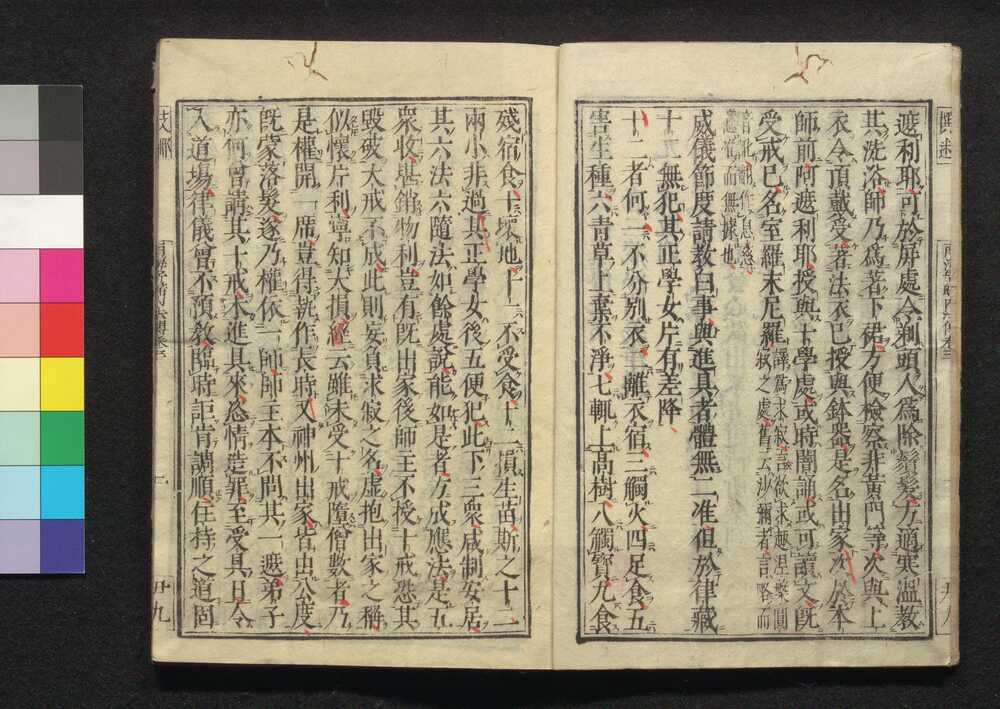 遮利耶可於屏處令剃頭人爲除鬚髮方適寒温教
其洗浴師乃爲著下裙方便檢察非黄門等次與上
衣令頂戴受著法衣已授與鉢器是名出家次於本
師前阿遮利耶授與十學處或時闇誦或可讀文既
受戒已名室羅末尼羅譯爲求寂言欲求趣涅槃圓
寂之處舊云沙彌者言略而
音訛翻作息慈
意准而無據也
威儀節度請教白事與進具者體無二准但於律藏
十二無犯其正學女片有差降
十二者何一不分別衣二離衣宿三觸火四足食五
害生種六青草上棄不淨七輒上高樹八觸寶九食
殘宿食十壞地十一不受食十二損生苗斯之十二
兩小非過其正學女後五便犯此下三衆咸制安居
其六法六隨法如餘處説能如是者方成應法是五
衆收堪銷物利豈有既出家後師主不授十戒恐其
毀破大戒不成此則妄負求寂之名虚抱出家之稱
似懷片利寧知大損經云雖未受十戒墮僧數者乃
是權開一席豈得執作長時又神州出家皆由公度
既蒙落髮遂乃權依一師師主本不問其一遮弟子
亦何曾請其十戒未進具來恣情造罪至受具日令
入道場律儀曾不預教臨時詎肯調順住持之道固
廿九